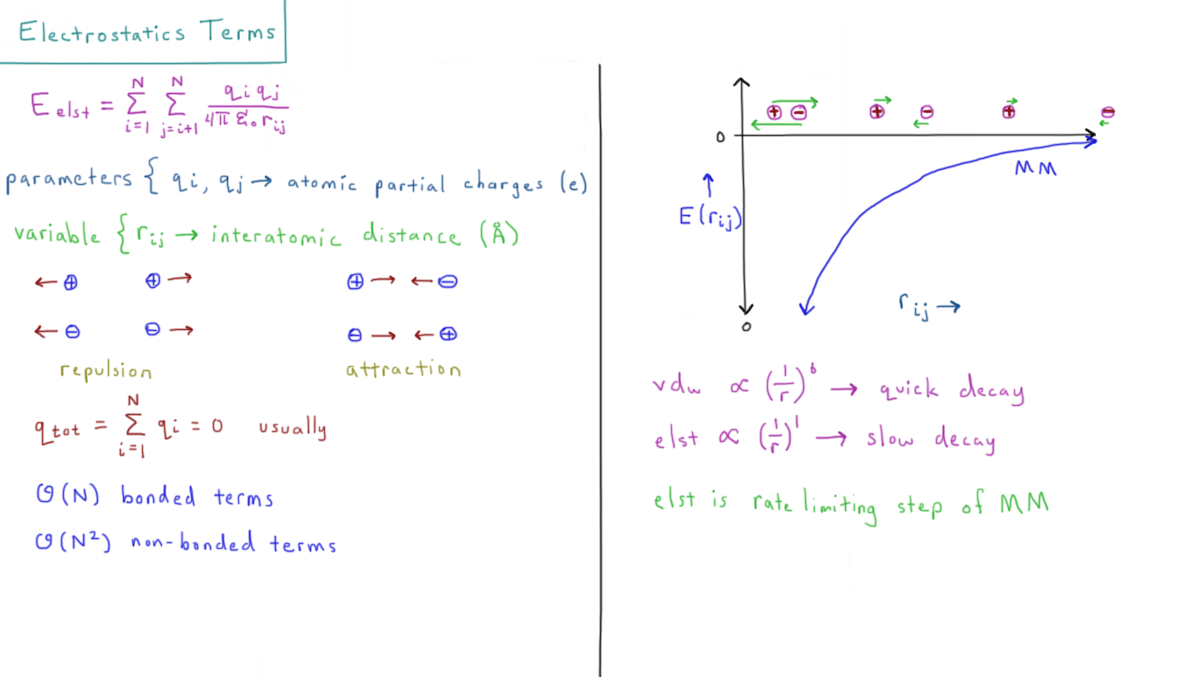 Electrostatics Terms
E elst = N Σ i=1 N Σ j=i+1 qi qj / 4π ε₀ rij
parameters { qi, qj → atomic partial charges (e)
variable { rij → interatomic distance (Å)
← ⊕ ⊕ → ⊕ → ← ⊖
← ⊖ ⊖ → ⊖ → ← ⊕
repulsion attraction
qtot = N Σ i=1 qi = 0 usually
O(N) bonded terms
O(N²) non-bonded terms
⊕ ⊖ ⊕ ⊖ ⊕ ⊖
0
MM
↑
E(rij)
rij →
0
vdw ∝ (1/r)⁶ → quick decay
elst ∝ (1/r)¹ → slow decay
elst is rate limiting step of MM